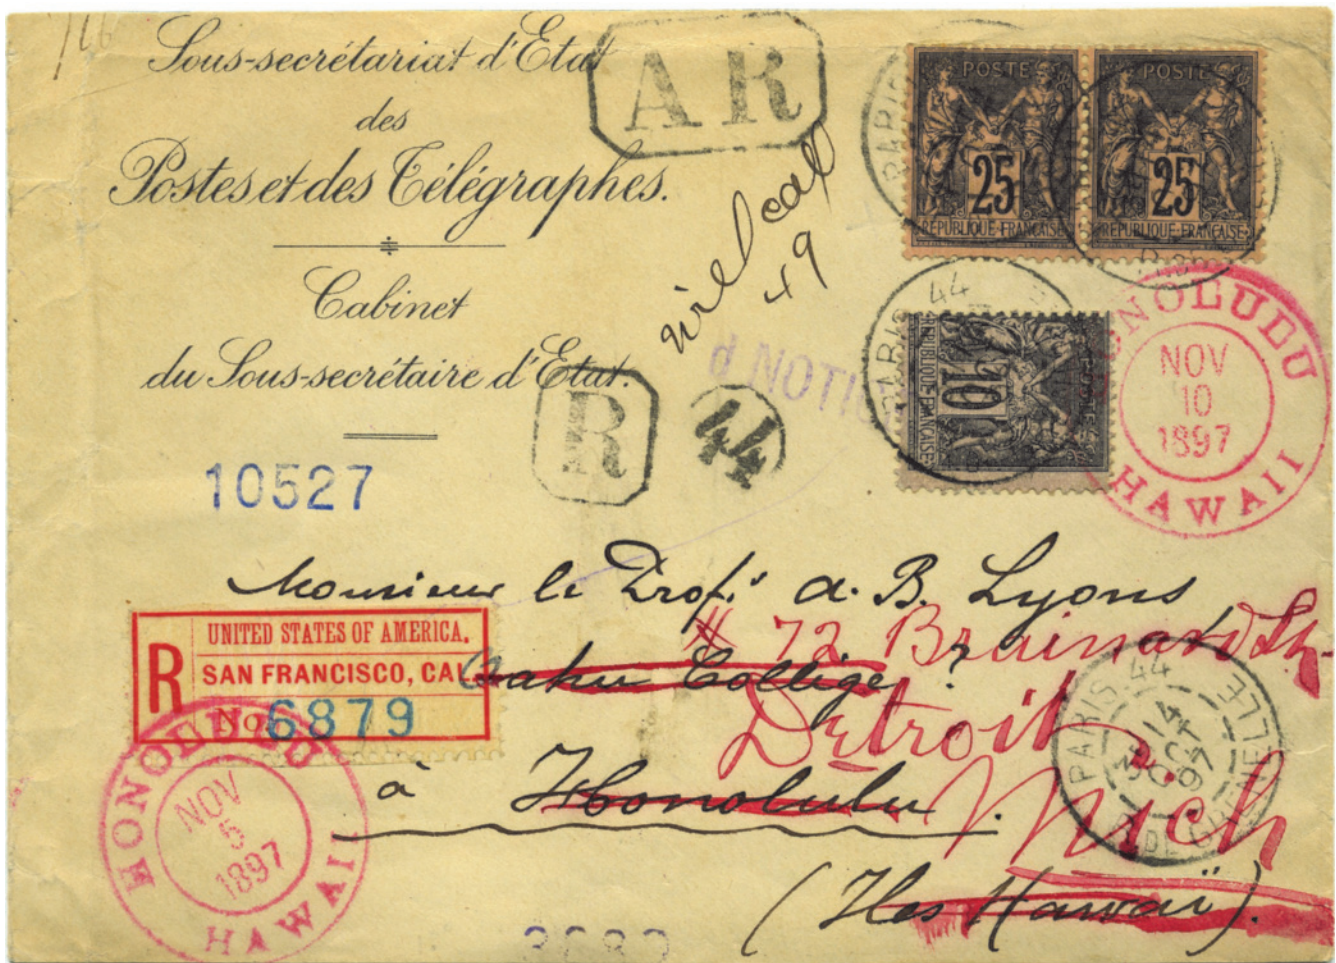 Sous-secrétariat d'Etat
des
Postes et des Télégraphes.
Cabinet
du Sous-secrétaire d'Etat.
A R
will call
49
POSTE
25
REPUBLIQUE FRANCAISE
POSTE
25
REPUBLIQUE FRANCAISE
PARIS 44
POSTE
10
REPUBLIQUE FRANCAISE
HONOLULU
NOV
10
1897
HAWAII
R
44
d NOTI
10527
Monsieur le Prof. A. B. Lyons
72 Brainard St.
Oahu College
Detroit
à Honolulu.
Mich
(Iles Hawaï).
UNITED STATES OF AMERICA.
R
SAN FRANCISCO, CAL.
No. 6879
HONOLULU
NOV
5
1897
HAWAII
PARIS 44
14
OCT
97
R. DE GRENELLE